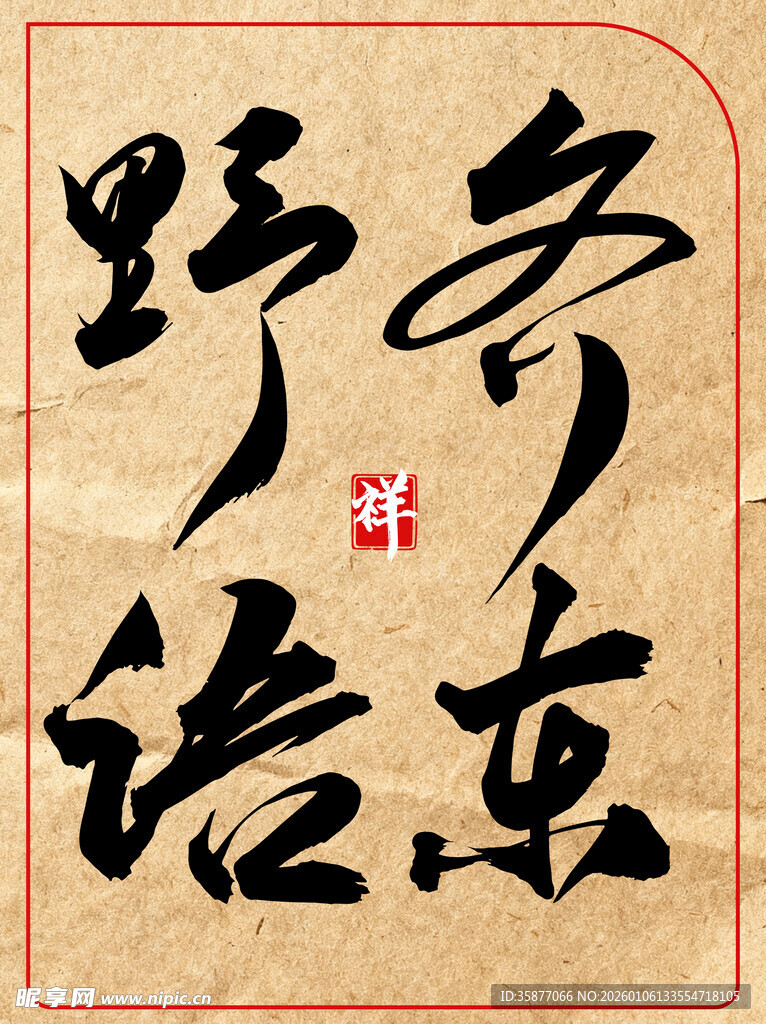 齐东
野语
祥
昵享网 www.nipic.cn
ID:35877066 NO:20260106133554718105